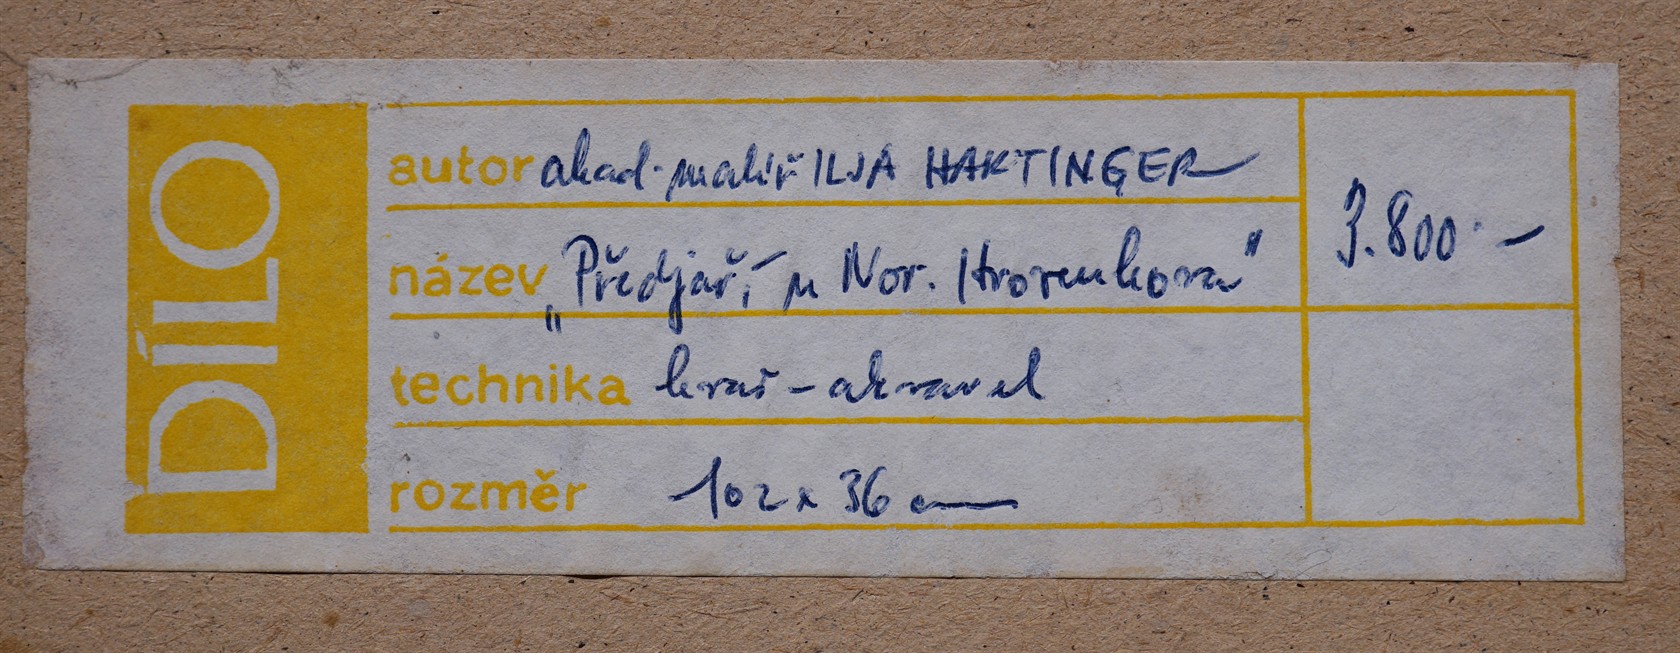 DÍLO
autor akad. malíř ILJA HARTINGER
název „Předjaří u Nov. Hrozenkova"
3.800.-
technika kvaš - akvarel
rozměr 102 x 36 cm